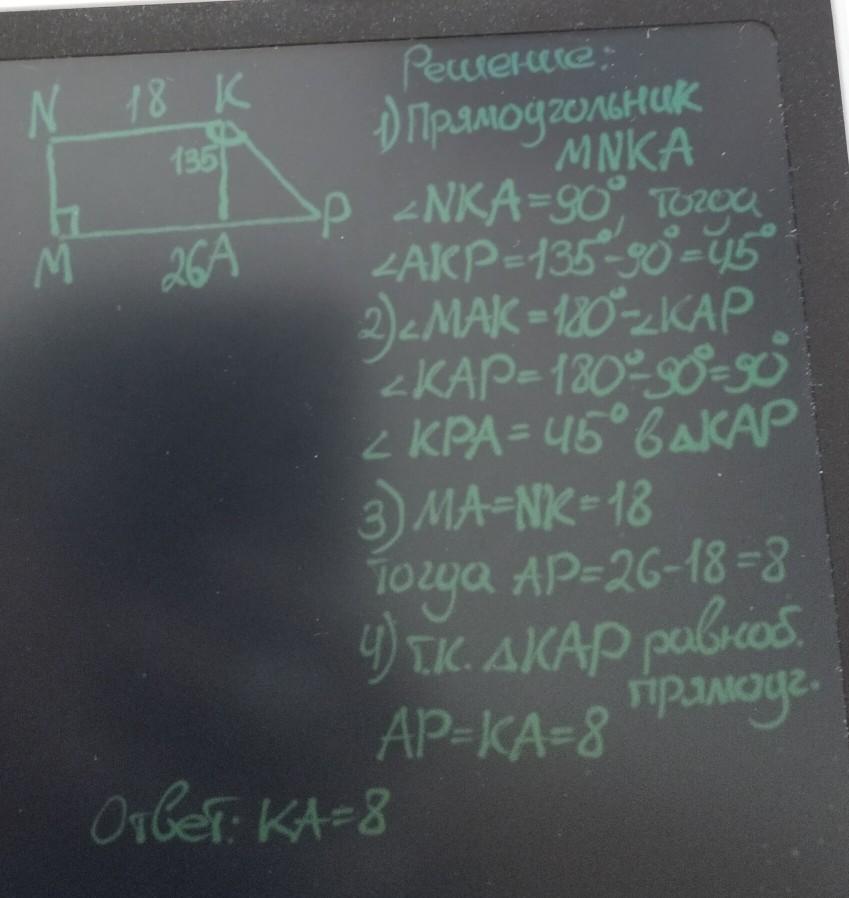 N 18 K
135
M 26 A P
Решение:
1) Прямоугольник
MNKA
∠NKA=90°, тогда
∠AKP=135°-90°=45°
2) ∠MAK=180°-∠KAP
∠KAP=180°-90°=90°
∠KPA=45° в △KAP
3) MA=NK=18
тогда AP=26-18=8
4) т.к. △KAP равноб.
прямоуг.
AP=KA=8
Ответ: KA=8